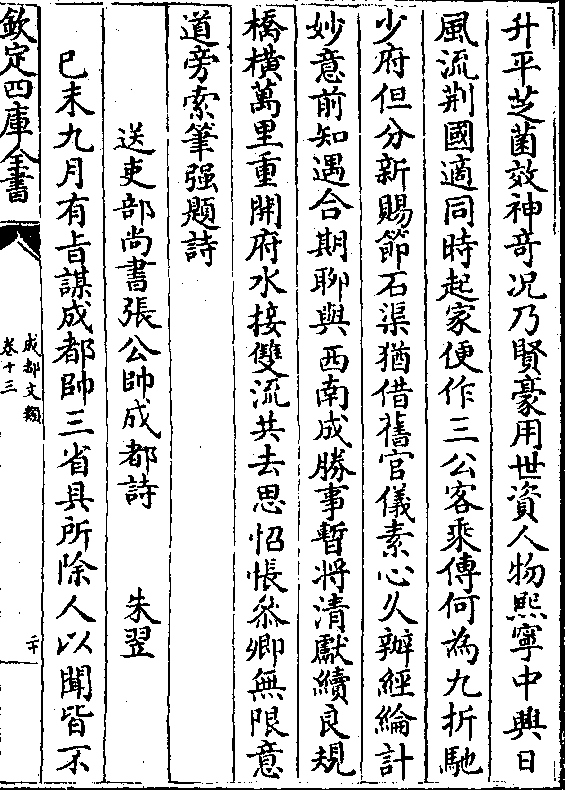 升平芝菌效神竒况乃賢豪用世資人物熙寧中興日
風流荆國適同時起家便作三公客乘傳何為九折馳
少府但分新賜節石渠猶借舊官儀素心久辦經綸計
妙意前知遇合期聊與西南成勝事暫將清獻續良規
橋横萬里重開府水接雙流共去思怊悵叅卿無限意
道旁索筆强題詩
送吏部尚書張公帥成都詩 朱翌
已未九月有㫖謀成都帥三省具所除人以聞皆不
欽定四庫全書
成都文類
卷十三
二十